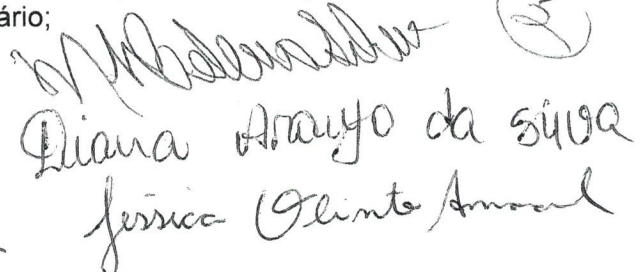 ário;
Diana Araujo da Silva
Jessica Olinto Amaral